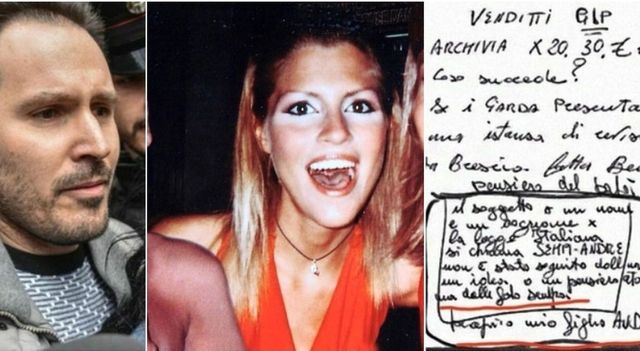 VENDITTI GIP
ARCHIVIA X 20. 30. €
?
Cosa succede?
Se i GIARDA Presenta
una istanza di revis
Brescia
pensiero del
il soggetto o un nome
e un cognome x
la loca è italiana
si chiama SEMPI-ANDRE
non è stato seguito dall
un idea, o un pensiero
ma dalle foto
mio figlio AND